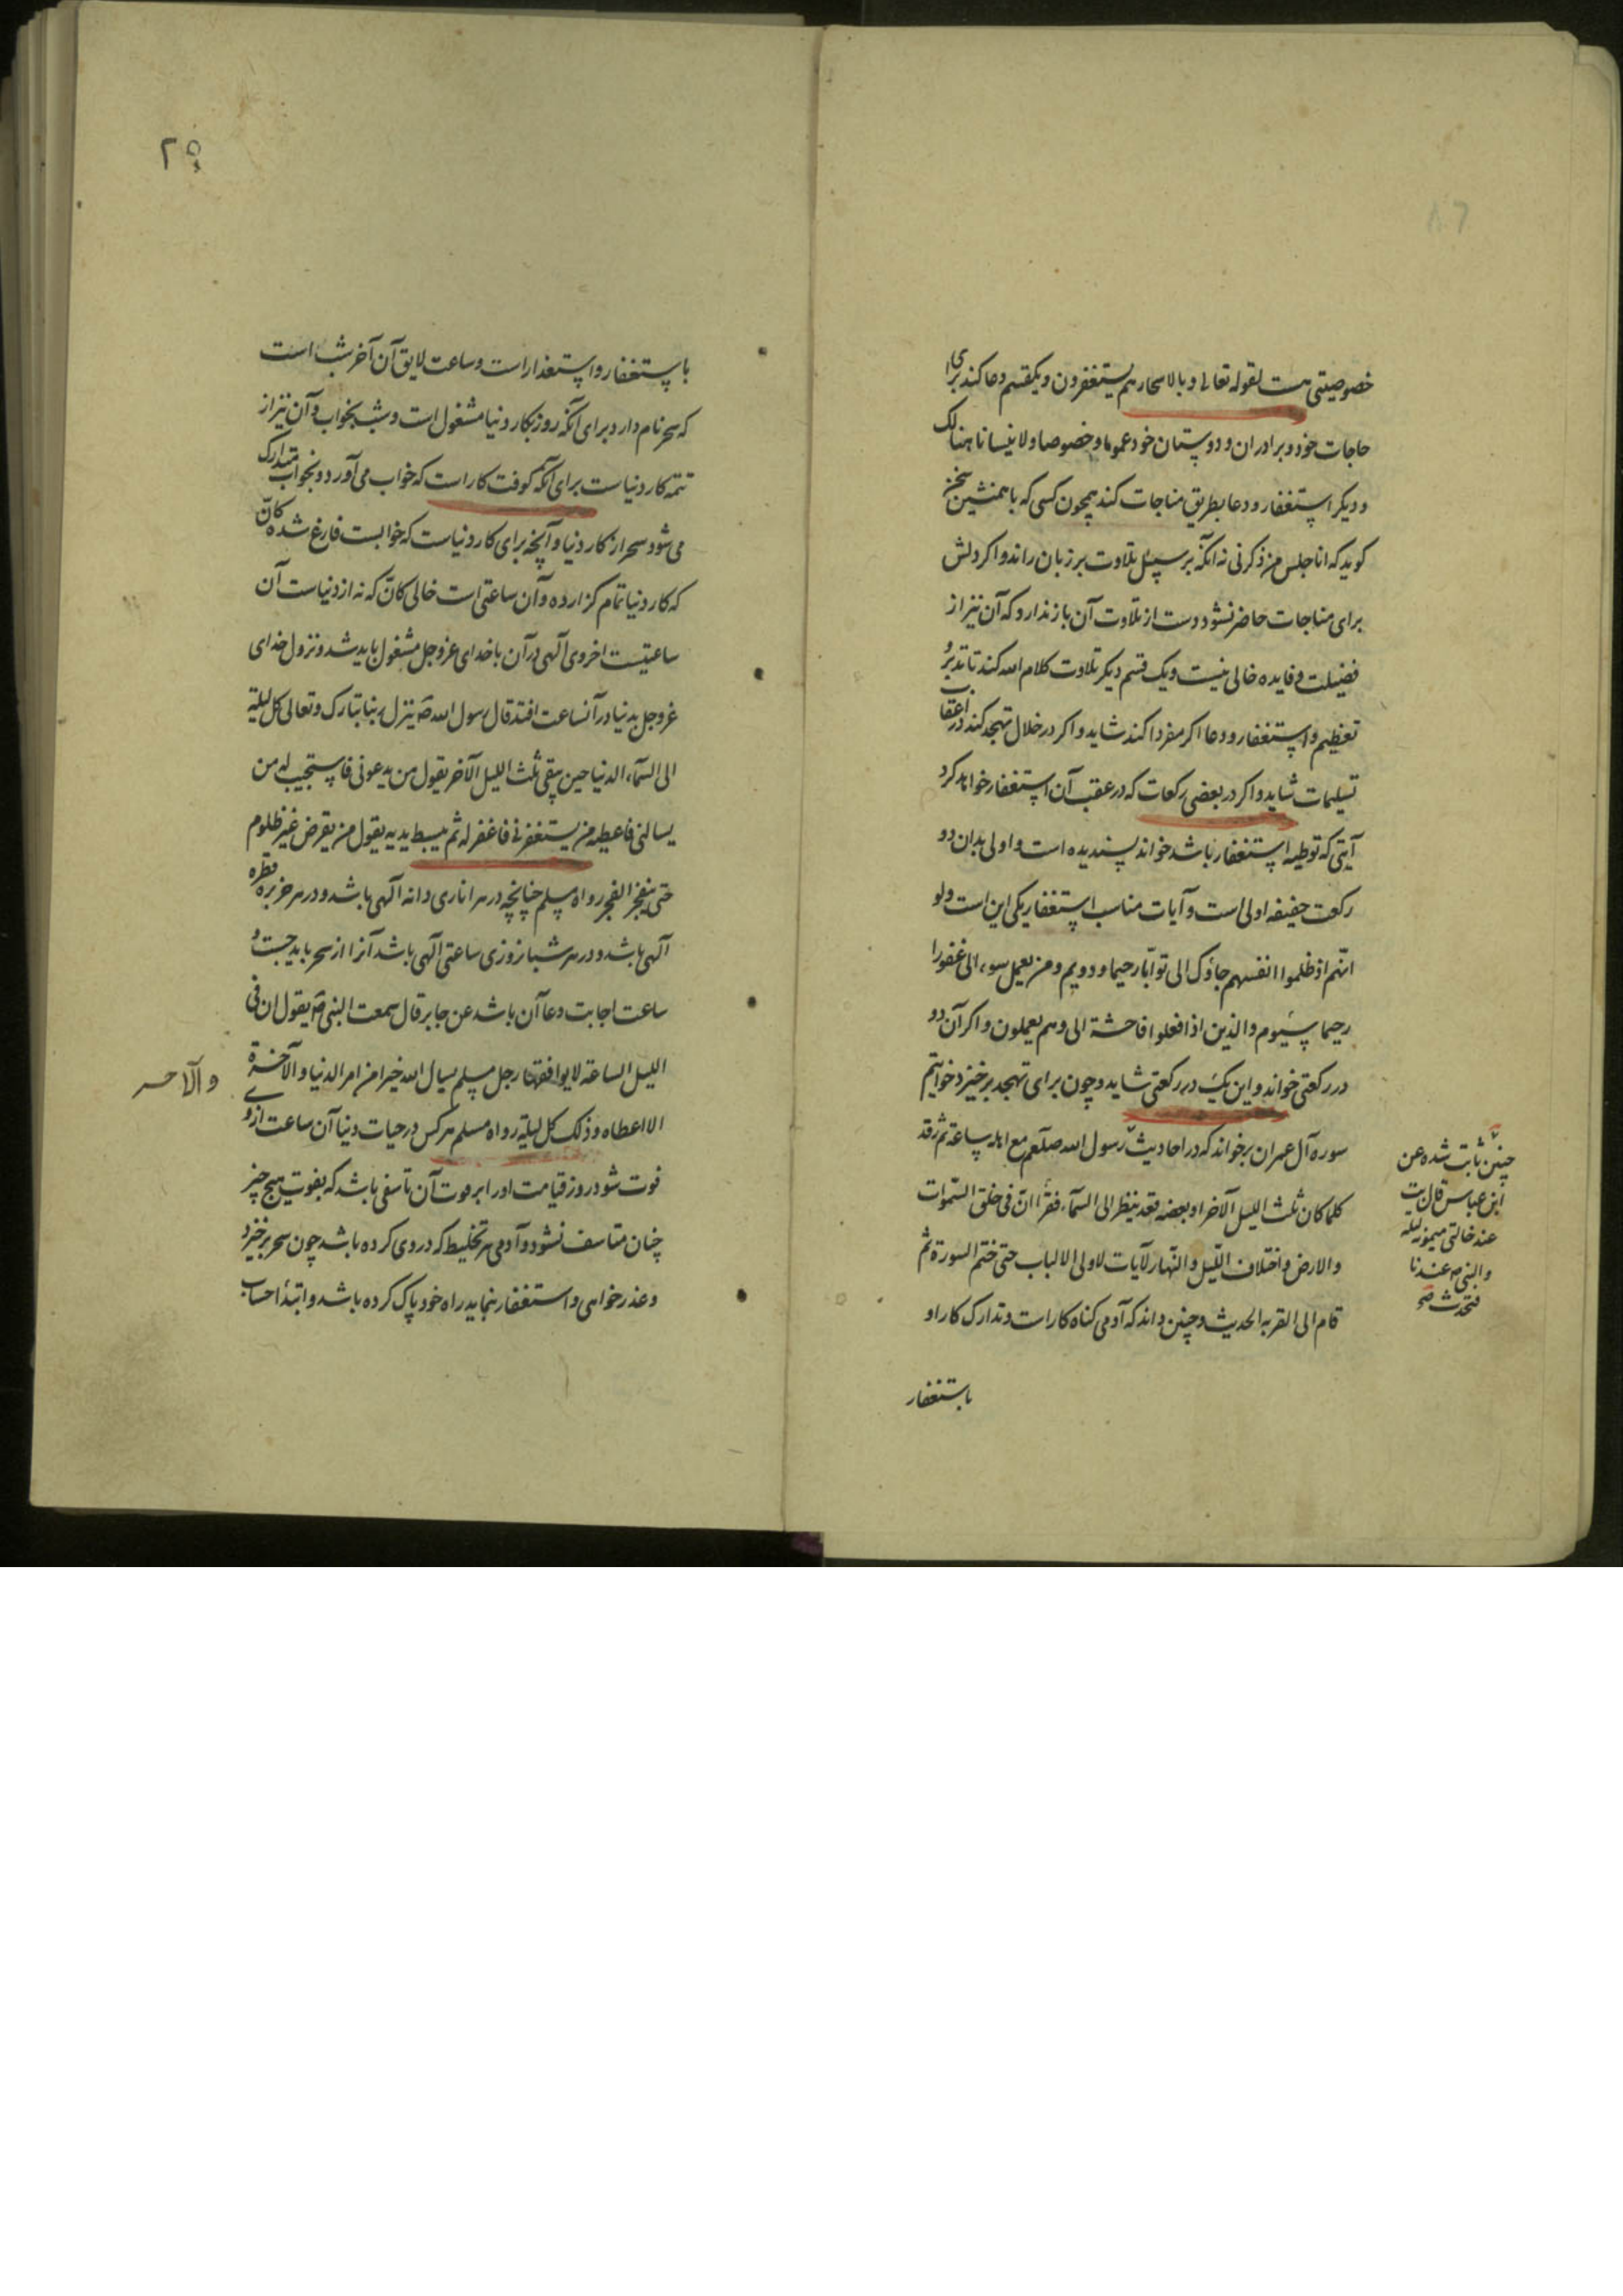 خصوصیتی هست لقوله تعالی و بالاسحار هم یستغفرون و یکقسم دعا کند برای
حاجات خود و برادران و دوستان خود عموما و خصوصا و لاینسانا هنالک
و دیکر استغفار و دعا بطریق مناجات کند همچون کسی که با همنشین سخن
کوید که انا جلیس من ذکرنی نه آنکه بر سبیل تلاوت بر زبان راند و اکر دلش
برای مناجات حاضر نشود دست از تلاوت آن باز ندارد که آن نیز از
فضیلت و فایده خالی نیست و یک قسم دیکر تلاوت کلام الله کند تا تدبر و
تعظیم و استغفار و دعا اکر مفردا کند شاید و اکر در خلال تهجد کند در اعقاب
تسلیمات شاید و اکر در بعضی رکعات که در عقب آن استغفار خواهد کرد
آیتی که توطیه استغفار باشد خواند پسندیده است و اولی بدان دو
رکعت خفیفه اولی است و آیات مناسب استغفار یکی این است ولو
انهم اذ ظلموا انفسهم جاؤک الی توابا رحیما و دویم و من یعمل سوء الی غفورا
رحیما سیوم والذین اذا فعلوا فاحشة الی وهم یعلمون و اکر آن دو
در رکعتی خواند و این یک در رکعتی شاید و چون برای تهجد برخیزد خواتیم
سوره آل عمران برخواند که در احادیث رسول الله صلعم مع اهله ساعة ثم رقد
کلما کان ثلث اللیل الآخر او بعضه قعد ینظر الی السماء فقرأ ان فی خلق السموات
والارض واختلاف اللیل والنهار لآیات لاولی الالباب حتی ختم السورة ثم
قام الی القربه الحدیث و چنین داند که آدمی کناه کار است و تدارک کار او
باستغفار
چنین ثابت شده عن
ابن عباس قال بت
عند خالتی میمونه لیلة
والنبی ص عندنا
فتحدث صح
باستغفار و استغذار است و ساعت لایق آن آخر شب است
که سحر نام دارد برای آنکه روز بکار دنیا مشغول است و شب بخواب و آن نیز از
تتمه کار دنیاست برای آنکه کوفت کار است که خواب می آورد و بخواب متدارک
می شود سحر از کار دنیا و آنچه برای کار دنیاست که خوابست فارغ شده کان
که کار دنیا تمام کزارده و آن ساعتی است خالی کان که نه از دنیاست آن
ساعتیست اخروی آلهی در آن با خدای عزوجل مشغول باید شد و نزول خدای
عزوجل بدنیا در آنساعت افتد قال رسول الله ص ینزل ربنا تبارک و تعالی کل لیلة
الی السماء الدنیا حین یبقی ثلث اللیل الآخر یقول من یدعونی فاستجیب له من
یسالنی فاعطیه من یستغفرنی فاغفر له ثم یبسط یدیه یقول من یقرض غیر ظلوم
حتی ینفجر الفجر رواه مسلم چنانچه در هر اناری دانه آلهی باشد و در هر خربزه قطره
آلهی باشد و در هر شبانروزی ساعتی آلهی باشد آنرا از سحر باید جست و
ساعت اجابت دعا آن باشد عن جابر قال سمعت النبی ص یقول ان فی
اللیل الساعة لایوافقها رجل مسلم یسال الله خیرا من امر الدنیا والآخرة
الا اعطاه وذلک کل لیلة رواه مسلم هر کس در حیات دنیا آن ساعت از وی
فوت شود روز قیامت او را بر فوت آن تاسفی باشد که بفوت هیچ چیز
چنان متاسف نشود و آدمی هر تخلیط که در وی کرده باشد چون سحر برخیزد
و عذر خواهی و استغفار بنماید راه خود پاک کرده باشد و ابتدا حساب